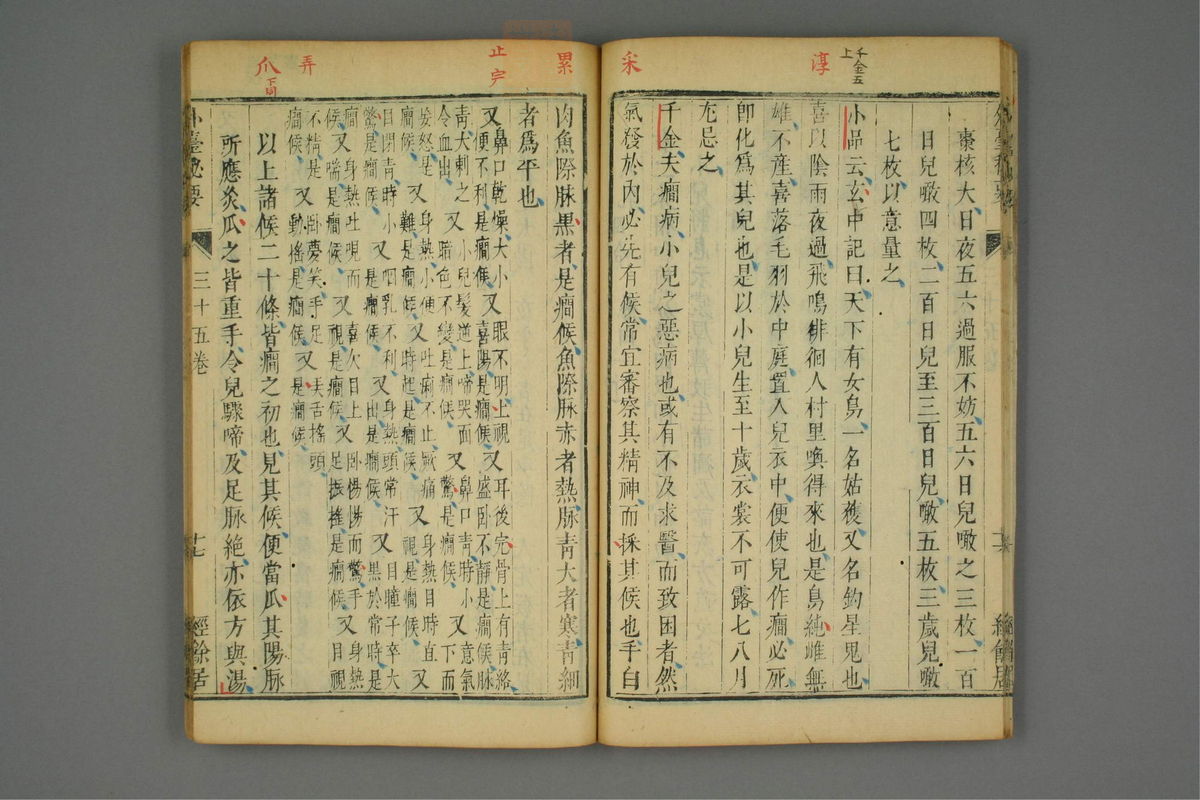 千金五
上
淳
采
棗核大日夜五六過服不妨五六日兒噉之三枚一百
日兒噉四枚二百日兒至三百日兒噉五枚三歲兒噉
七枚以意量之
小品云玄中記曰天下有女鳥一名姑獲又名鈎星鬼也
喜以陰雨夜過飛鳴徘徊人村里喚得來也是鳥純雌無
雄不產喜落毛羽於中庭置人兒衣中便使兒作癇必死
卽化爲其兒也是以小兒生至十歲衣裳不可露七八月
尤忌之
千金夫癇病小兒之惡病也或有不及求醫而致困者然
氣發於內必先有候常宜審察其精神而採其候也手白
累
止 完
弄
爪 下同
肉魚際脉黒者是癇候魚際脉赤者熱脉靑大者寒靑細
者爲平也
又鼻口乾燥大小 又眼不明上視 又耳後完骨上有靑絡
便不利是癇候 喜陽是癇候 盛卧不靜是癇候脉
靑大刺之 又小兒髮逆上啼哭面 又鼻口靑時小 又意氣
令血出 暗色不變是癇候 驚是癇候 下而
妄怒是 又身熱小便 又吐痢不止厥痛 又身熱目時直 又
癇候 難是癇候 時起是癇候 視是癇候
目閉靑時小 又咽乳不利 又身熱頭常汗 又目瞳子卒大
驚是癇候 是癇候 出是癇候 黒於常時是
癇 又身熱吐哯而 喜欠目上 卧惕惕而驚手 又身熱
候 喘是癇候 又視是癇候 又足振搖是癇候 目視
不精是 又卧夢笑手足 又弄舌搖頭
癇候 動搖是癇候 是癇候
以上諸候二十條皆癇之初也見其候便當瓜其陽脉
所應炙瓜之皆重手令兒驟啼及足脉絕亦依方與湯
外臺秘要 三十五卷 十七 經餘居